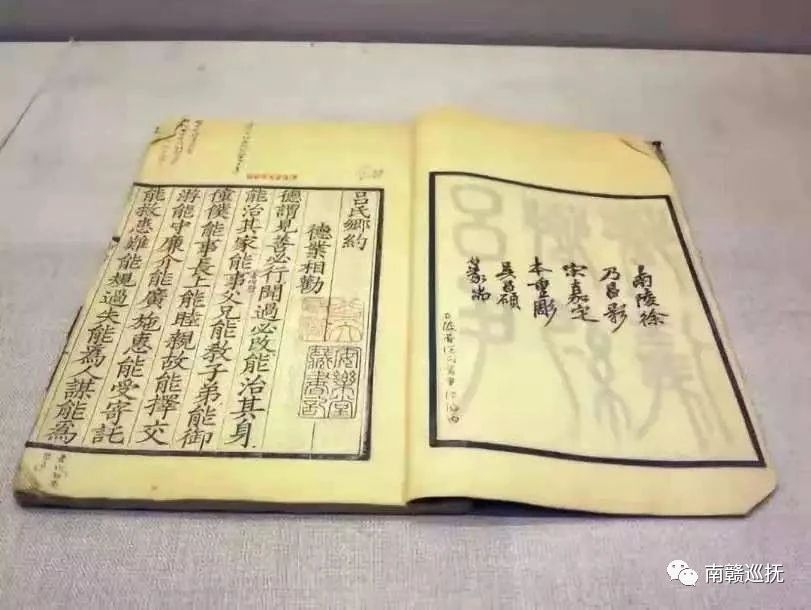 南陵徐
乃昌影
宋嘉定
本重彫
吳昌碩
篆耑
呂氏鄉約
德業相勸
德謂見善必行聞過必改能治其身
能治其家能事父兄能教子弟能御
僮僕能事長上能睦親故能擇交
游能守廉介能廣施惠能受寄託
能救患難能規過失能為人謀能為
安樂堂
藏書記
南赣巡抚